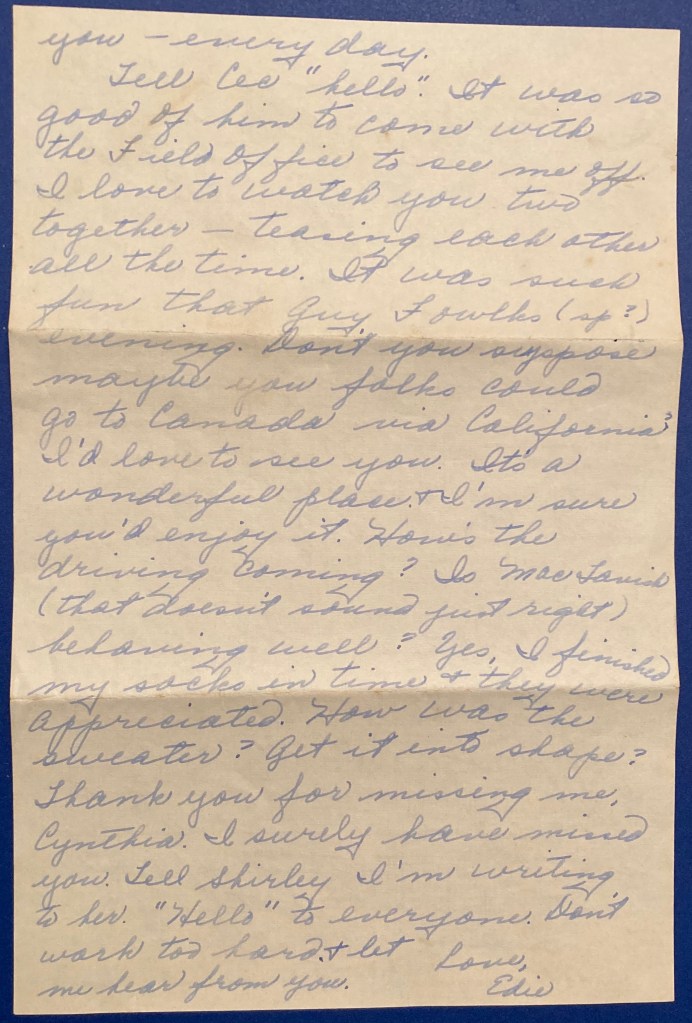 you – every day.
Tell Cec "hello". It was so
good of him to come with
the Field Office to see me off.
I love to watch you two
together – teasing each other
all the time. It was such
fun that Guy Fowlks (sp?)
evening. Don't you suppose
maybe you folks could
go to Canada via California?
I'd love to see you. It's a
wonderful place & I'm sure
you'd enjoy it. How's the
driving coming? Is MacTavish
(that doesn't sound just right)
behaving well? Yes, I finished
my socks in time & they were
appreciated. How was the
sweater? Get it into shape?
Thank you for missing me,
Cynthia. I surely have missed
you. Tell Shirley I'm writing
to her. "Hello" to everyone. Don't
work too hard & let
me hear from you.
Love,
Edie